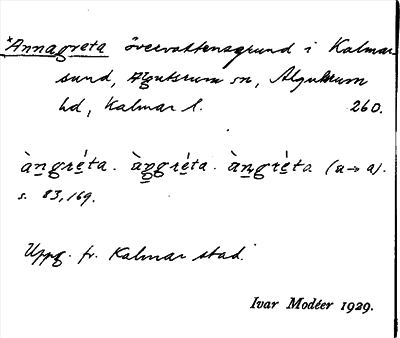 *Annagreta övervattensgrund i Kalmar
sund, Algutsrum sn, Algutsrum
hd, Kalmar l. 260.
àngréta. àngréta. àngréta (a→a).
s. 83, 169.
Uppg. fr. Kalmar stad.
Ivar Modéer 1929.